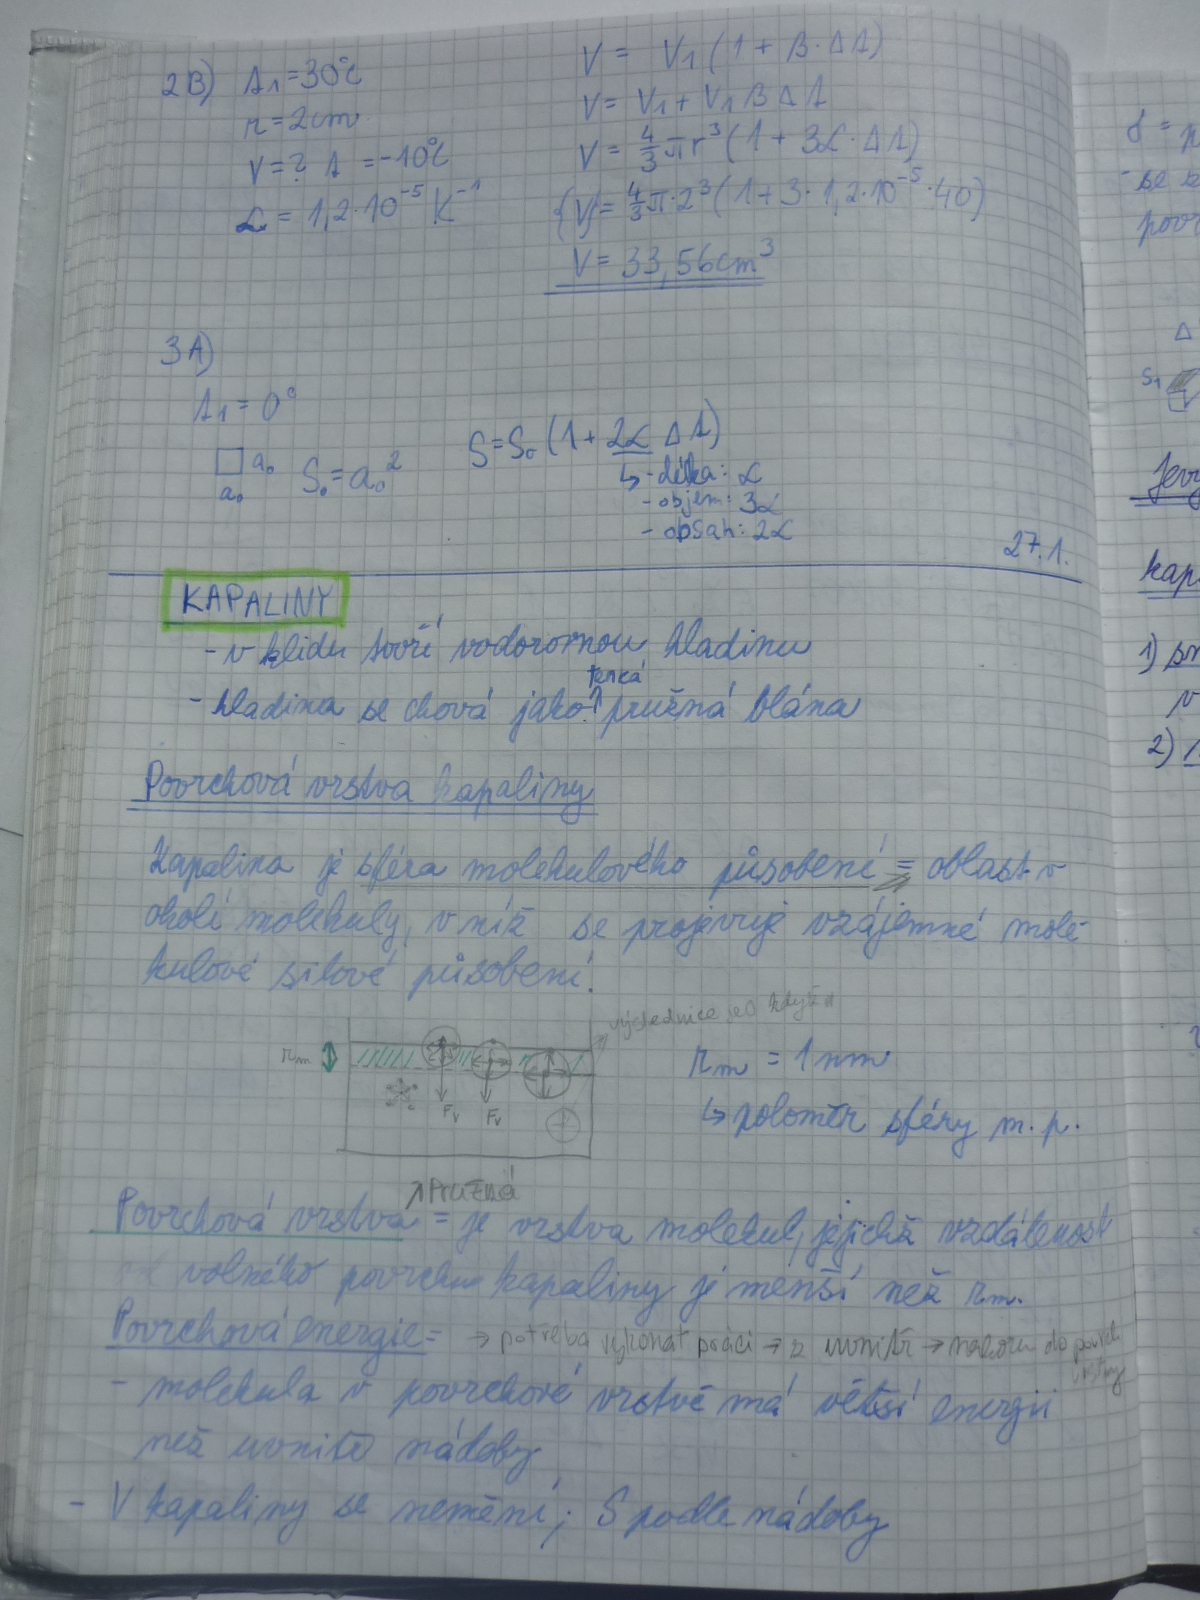 2B) t₁ = 30°C
r = 2cm
V = ? t = -10°C
α = 1,2·10⁻⁵ K⁻¹
V = V₁ (1 + β · Δt)
V = V₁ + V₁ β Δt
V = 4/3 πr³ (1 + 3α · Δt)
{V} = 4/3 π·2³ (1 + 3·1,2·10⁻⁵·40)
V = 33,56cm³
3A)
t₁ = 0°
a₀ S₀ = a₀²
a₀
S = S₀ (1 + 2α Δt)
↳ - délka: α
- objem: 3α
- obsah: 2α
27.1.
KAPALINY
- v klidu tvoří vodorovnou hladinu
tenká
- hladina se chová jako ↑ pružná blána
Povrchová vrstva kapaliny
Kapalina je sféra molekulového působení = oblast v
okolí molekuly, v níž se projevuje vzájemné mole-
kulové silové působení.
výslednice je 0 když
rₘ
Fᵥ Fᵥ
rₘ = 1 nm
↳ poloměr sféry m. p.
↗ PRUŽNÁ
Povrchová vrstva = je vrstva molekul, jejichž vzdálenost
volného povrchu kapaliny je menší než rₘ.
Povrchová energie = → potřeba vykonat práci → z vnitř → nahoru do povrch
vrstvy
- molekula v povrchové vrstvě má větší energii
než uvnitř nádoby
- V kapaliny se nemění; S podle nádoby
S₁
1)
v
2)